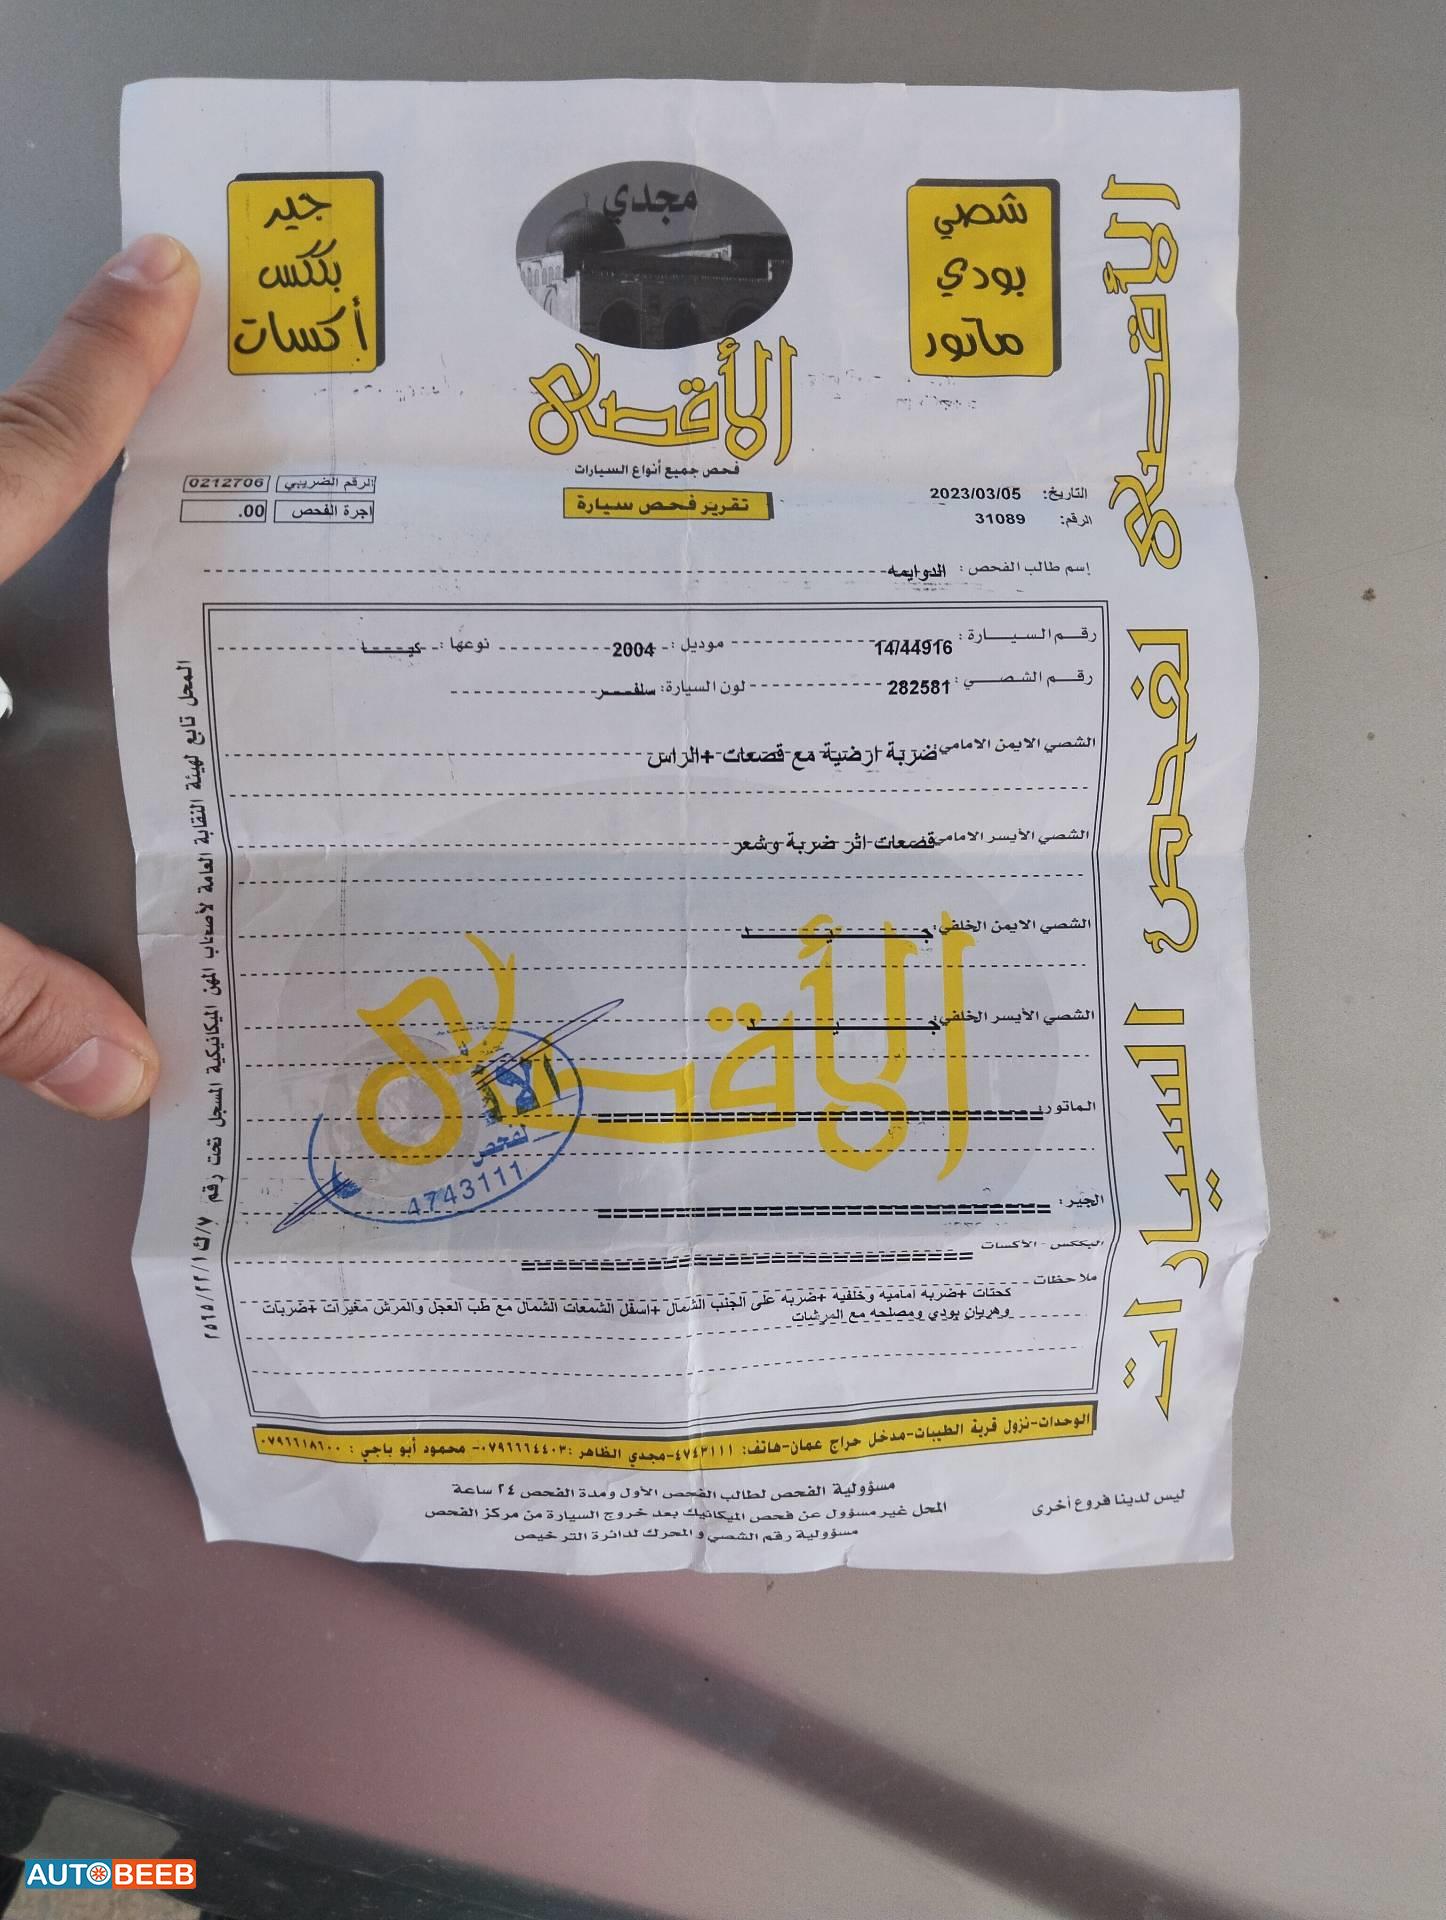 شصي
بودي
ماتور
مجدي
جير
بككس
أكسات
الأقصى
فحص جميع أنواع السيارات
تقرير فحص سيارة
التاريخ: 2023/03/05
الرقم: 31089
الرقم الضريبي 0212706
اجرة الفحص .00
إسم طالب الفحص : الدوايمه
رقم السيارة : 14/44916 موديل : 2004 نوعها : كيا
رقم الشصي : 282581 لون السيارة: سلفر
الشصي الايمن الامامي: ضربة ارضية مع قصعات +الراس
الشصي الأيسر الامامي: قصعات اثر ضربة وشعر
الشصي الايمن الخلفي: جيد
الشصي الأيسر الخلفي: جيد
الماتور: ==============================
الجير : ==============================
البككس - الأكسات ==============================
ملاحظات
كحتات +ضربه اماميه وخلفيه +ضربه على الجنب الشمال +اسفل الشمعات الشمال مع طب العجل والمرش مغيرات +ضربات
وهريان بودي ومصلحه مع المرشات
الأقصى
لفحص
4743111
الوحدات-نزول قرية الطيبات-مدخل حراج عمان-هاتف: ٤٧٤٣١١١-مجدي الظاهر :٠٧٩٦٦٦٤٤٠٣- محمود أبو باجي : ٠٧٩٦٦١٨٦٠٠
مسؤولية الفحص لطالب الفحص الأول ومدة الفحص ٢٤ ساعة
المحل غير مسؤول عن فحص الميكانيك بعد خروج السيارة من مركز الفحص
مسؤولية رقم الشصي والمحرك لدائرة الترخيص
ليس لدينا فروع أخرى
الأقصى لفحص السيارات
المحل تابع لهيئة النقابة العامة لأصحاب المهن الميكانيكية المسجل تحت رقم ٧/ك٢٥٦٥/٢٢/١
AUTOBEEB